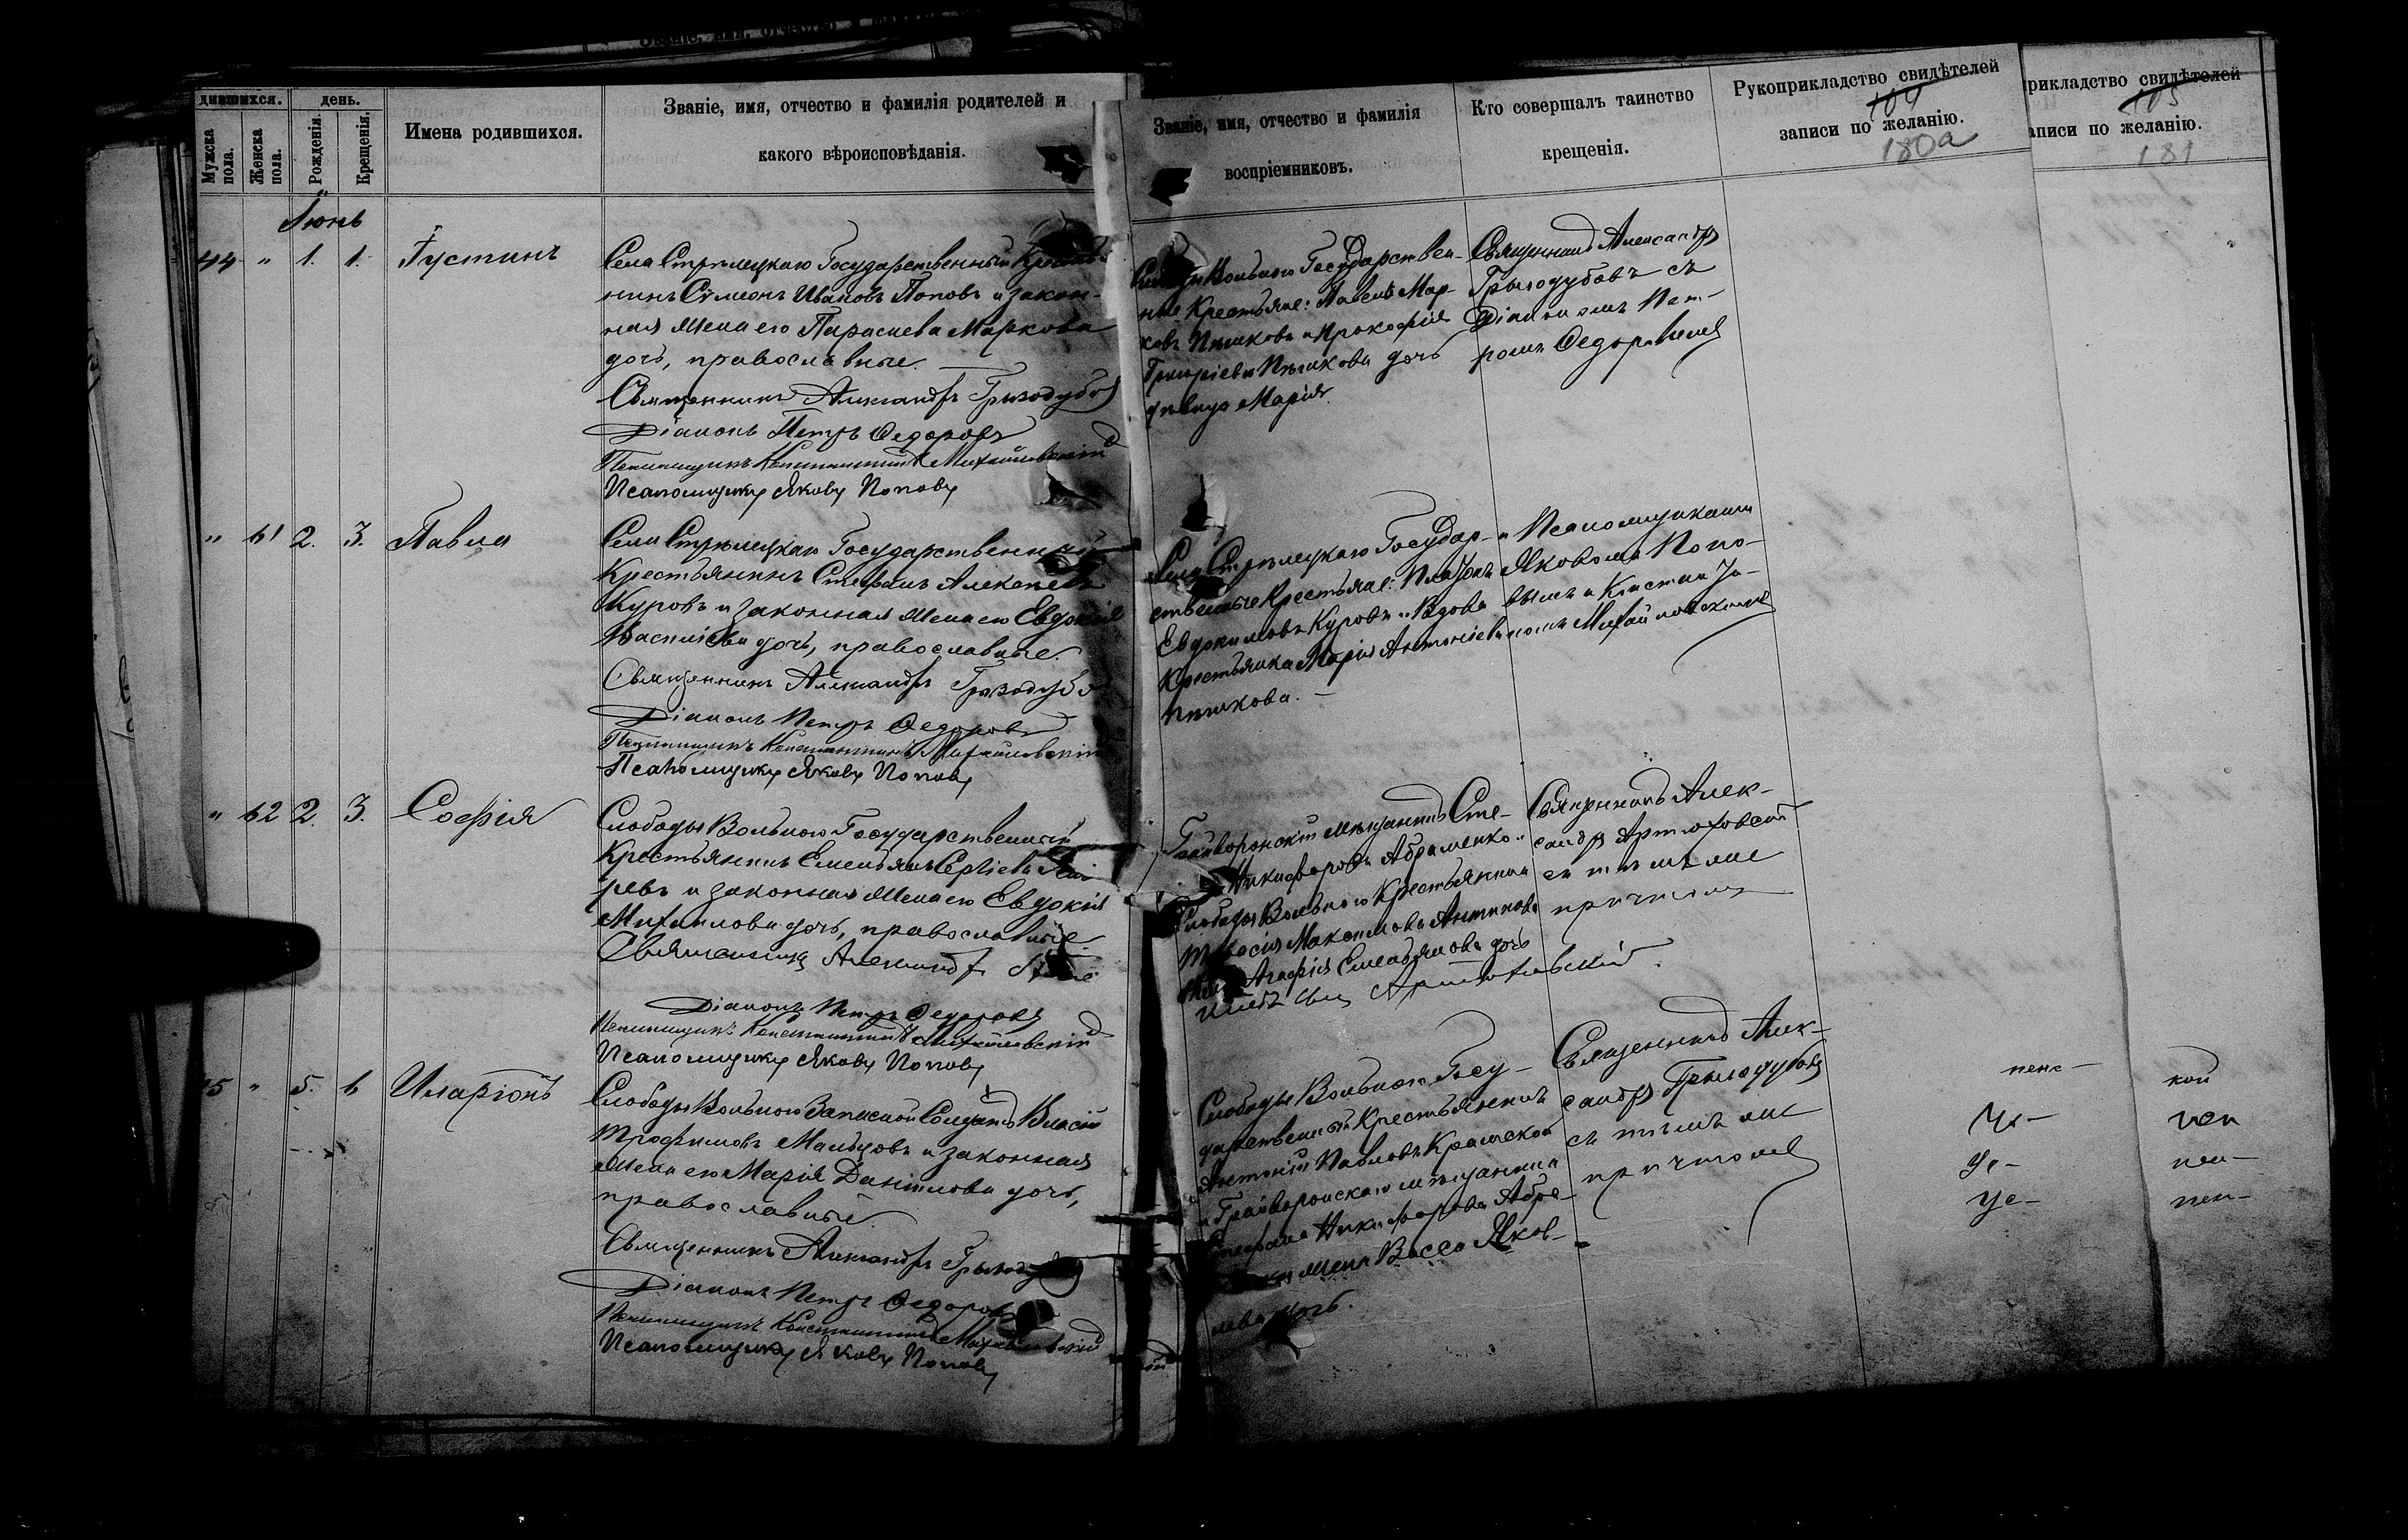 дившихся.
день.
Мужска пола.
Женска пола.
Рожденія.
Крещенія.
Имена родившихся.
Званіе, имя, отчество и фамилія родителей и
какого вѣроисповѣданія.
Званіе, имя, отчество и фамилія
воспріемниковъ.
Кто совершалъ таинство
крещенія.
Рукоприкладство свидѣтелей
104
записи по желанію.
180а
рикладство свидѣтелей
105
аписи по желанію.
181
Іюнь
44 " 1. 1. Іустинъ
Села Стрѣлецкаго Государственный
нинъ Сѵмеонъ Ивановъ Поповъ и закон-
ная жена его Параскева Маркова
дочь, православные.
Священникъ Александръ Грызодубовъ
Діаконъ Петръ Ѳедоровъ
Псаломщикъ Константинъ Михайловскій
Псаломщикъ Яковъ Поповъ
Вольного Государствен-
ные Крестьяне: Павелъ Мар-
ковъ Пѣшковъ и Прокофія
Григоріева Пѣшкова дочь
дѣвица Марія.
Священникъ Александръ
Грызодубовъ съ
Діакономъ Пет-
ромъ Ѳедоровымъ
" 61 2. 3. Павла
Села Стрѣлецкаго Государственный
Крестьянинъ Стефанъ Алексѣевъ
Куровъ и законная жена его Евдокія
Васильева дочь, православные.
Священникъ Александръ Грызодубовъ
Діаконъ Петръ Ѳедоровъ
Псаломщикъ Константинъ Михайловскій
Псаломщикъ Яковъ Поповъ
Села Стрѣлецкаго Государ-
ственные Крестьяне: Платонъ
Евдокимовъ Куровъ и Вдова
Крестьянка Марія Антоніева
Пѣшкова.
и Псаломщиками
Яковомъ Попо-
вымъ и Констан
Михайловскимъ
" 62 2. 3. Софія
Слободы Вольного Государственный
Крестьянинъ Емельянъ Сергіевъ
ревъ и законная жена его Евдокія
Михаилова дочь, православные.
Священникъ Александръ
Діаконъ Петръ Ѳедоровъ
Псаломщикъ Константинъ Михайловскій
Псаломщикъ Яковъ Поповъ
Грайворонскій мѣщанинъ Сте-
Никифоровъ Абраменко и
Слободы Вольного Крестьянина
Тарасія Максимова Антипова
жена Агафія Емельянова дочь
Артюховскій.
Священникъ Алек-
сандръ Артюховскій
съ тѣмъ же
причтомъ
45 " 5. 6 Иларіонъ
Слободы Вольного Запасной Солдатъ Власій
Трофимовъ Мальцовъ и законная
жена его Марія Даніилова дочь,
православные.
Священникъ Александръ Грызодубовъ
Діаконъ Петръ Ѳедоровъ
Псаломщикъ Константинъ Михайловскій
Псаломщикъ Яковъ Поповъ
Слободы Вольного Госу-
дарственный Крестьянинъ
Антоній Павловъ
и Грайворонскаго мѣщанина
Стефана Никифорова Абра-
жена Васса Яков-
лева дочь.
Священникъ Алек-
сандръ Грызодубовъ
съ тѣмъ же
причтомъ